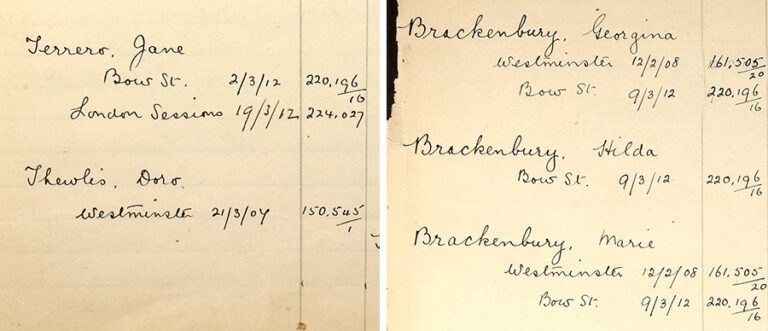 Terrero, Jane
Bow St. 2/3/12 220,196/16
London Sessions 19/3/12 224,027
Thewlis, Doro.
Westminster 21/3/07 150,545/1
Brackenbury, Georgina
Westminster 12/2/08 161,505/20
Bow St. 9/3/12 220,196/16
Brackenbury, Hilda
Bow St. 9/3/12 220,196/16
Brackenbury, Marie
Westminster 12/2/08 161,505/20
Bow St. 9/3/12 220,196/16